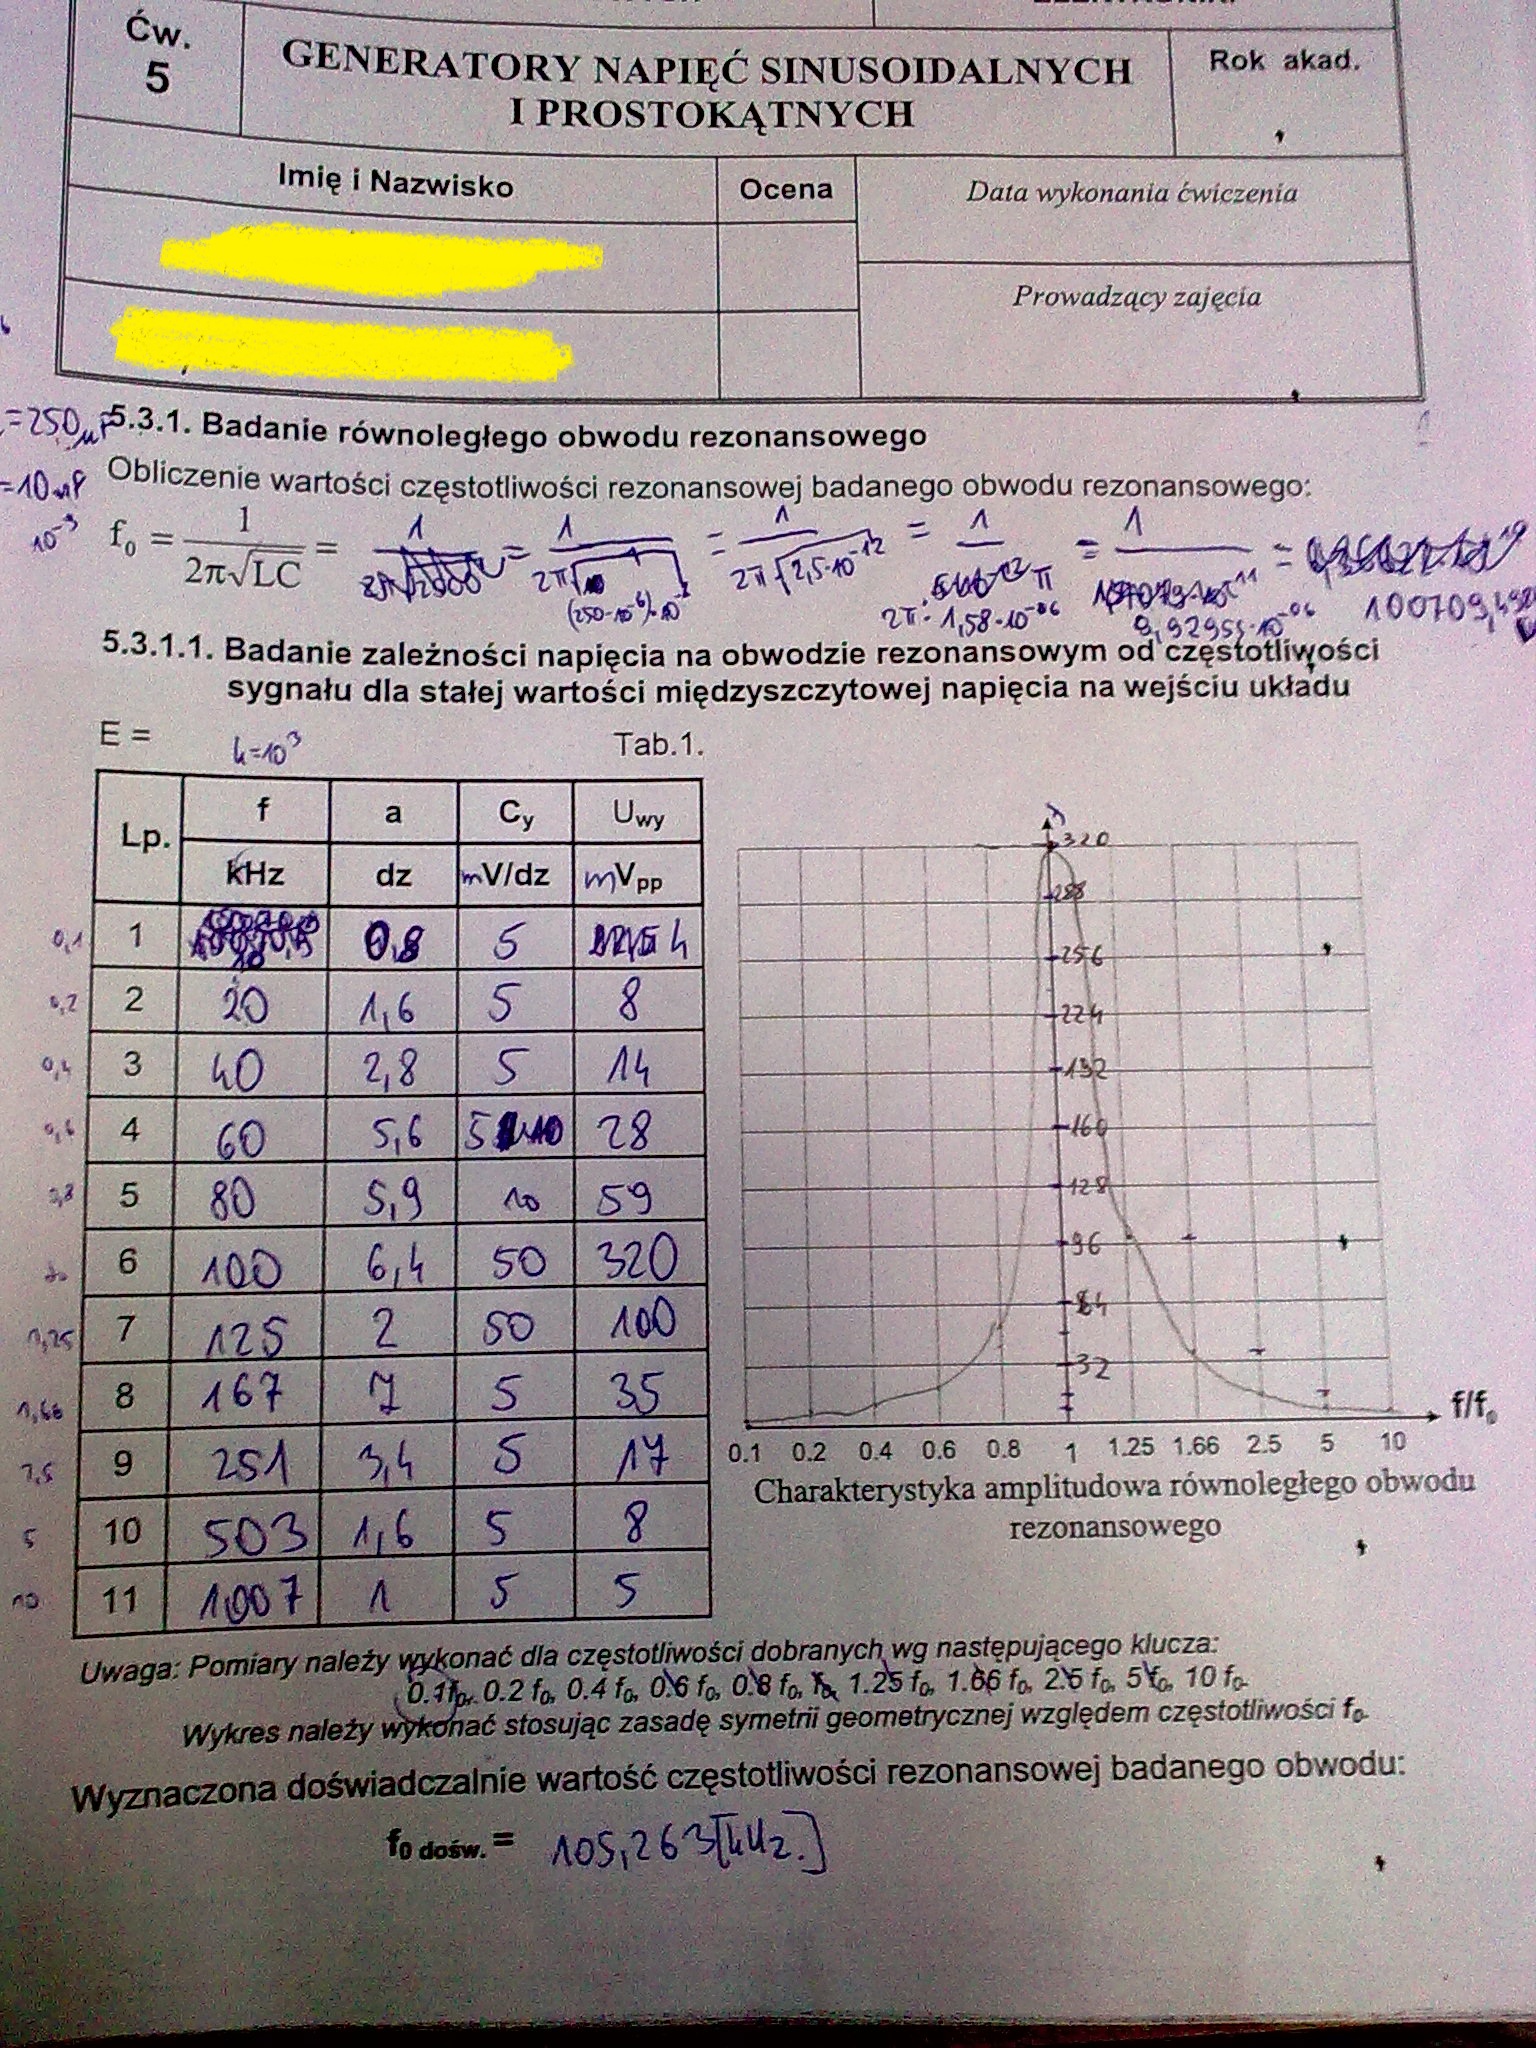 Ćw.
5
GENERATORY NAPIĘĆ SINUSOIDALNYCH
I PROSTOKĄTNYCH
Rok akad.
Imię i Nazwisko
Ocena
Data wykonania ćwiczenia
Prowadzący zajęcia
=250μF
5.3.1. Badanie równoległego obwodu rezonansowego
=10nF
Obliczenie wartości częstotliwości rezonansowej badanego obwodu rezonansowego:
10⁻³
f₀ = 1/(2π√LC) = 1 = 1/(2π√(250·10⁻⁶)·10) = 1/(2π√2,5·10⁻¹²) = 1/(2π·1,58·10⁻⁰⁶) = 1/(9,92955·10⁻⁰⁶) = 100709,492
5.3.1.1. Badanie zależności napięcia na obwodzie rezonansowym od częstotliwości
sygnału dla stałej wartości międzyszczytowej napięcia na wejściu układu
E =
k=10³
Tab.1.
Lp. f a Cy Uwy
kHz dz mV/dz mVpp
0,1 1 10 0,8 5 4
0,2 2 20 1,6 5 8
0,4 3 40 2,8 5 14
0,6 4 60 5,6 5 28
0,8 5 80 5,9 10 59
f₀ 6 100 6,4 50 320
1,25 7 125 2 50 100
1,66 8 167 7 5 35
2,5 9 251 3,4 5 17
5 10 503 1,6 5 8
10 11 1007 1 5 5
320
288
256
224
192
160
128
96
64
32
f/f₀
0.1 0.2 0.4 0.6 0.8 1 1.25 1.66 2.5 5 10
Charakterystyka amplitudowa równoległego obwodu
rezonansowego
Uwaga: Pomiary należy wykonać dla częstotliwości dobranych wg następującego klucza:
0.1f₀, 0.2 f₀, 0.4 f₀, 0.6 f₀, 0.8 f₀, f₀, 1.25 f₀, 1.66 f₀, 2.5 f₀, 5 f₀, 10 f₀.
Wykres należy wykonać stosując zasadę symetrii geometrycznej względem częstotliwości f₀.
Wyznaczona doświadczalnie wartość częstotliwości rezonansowej badanego obwodu:
f₀ dośw. = 105,263[kHz.]